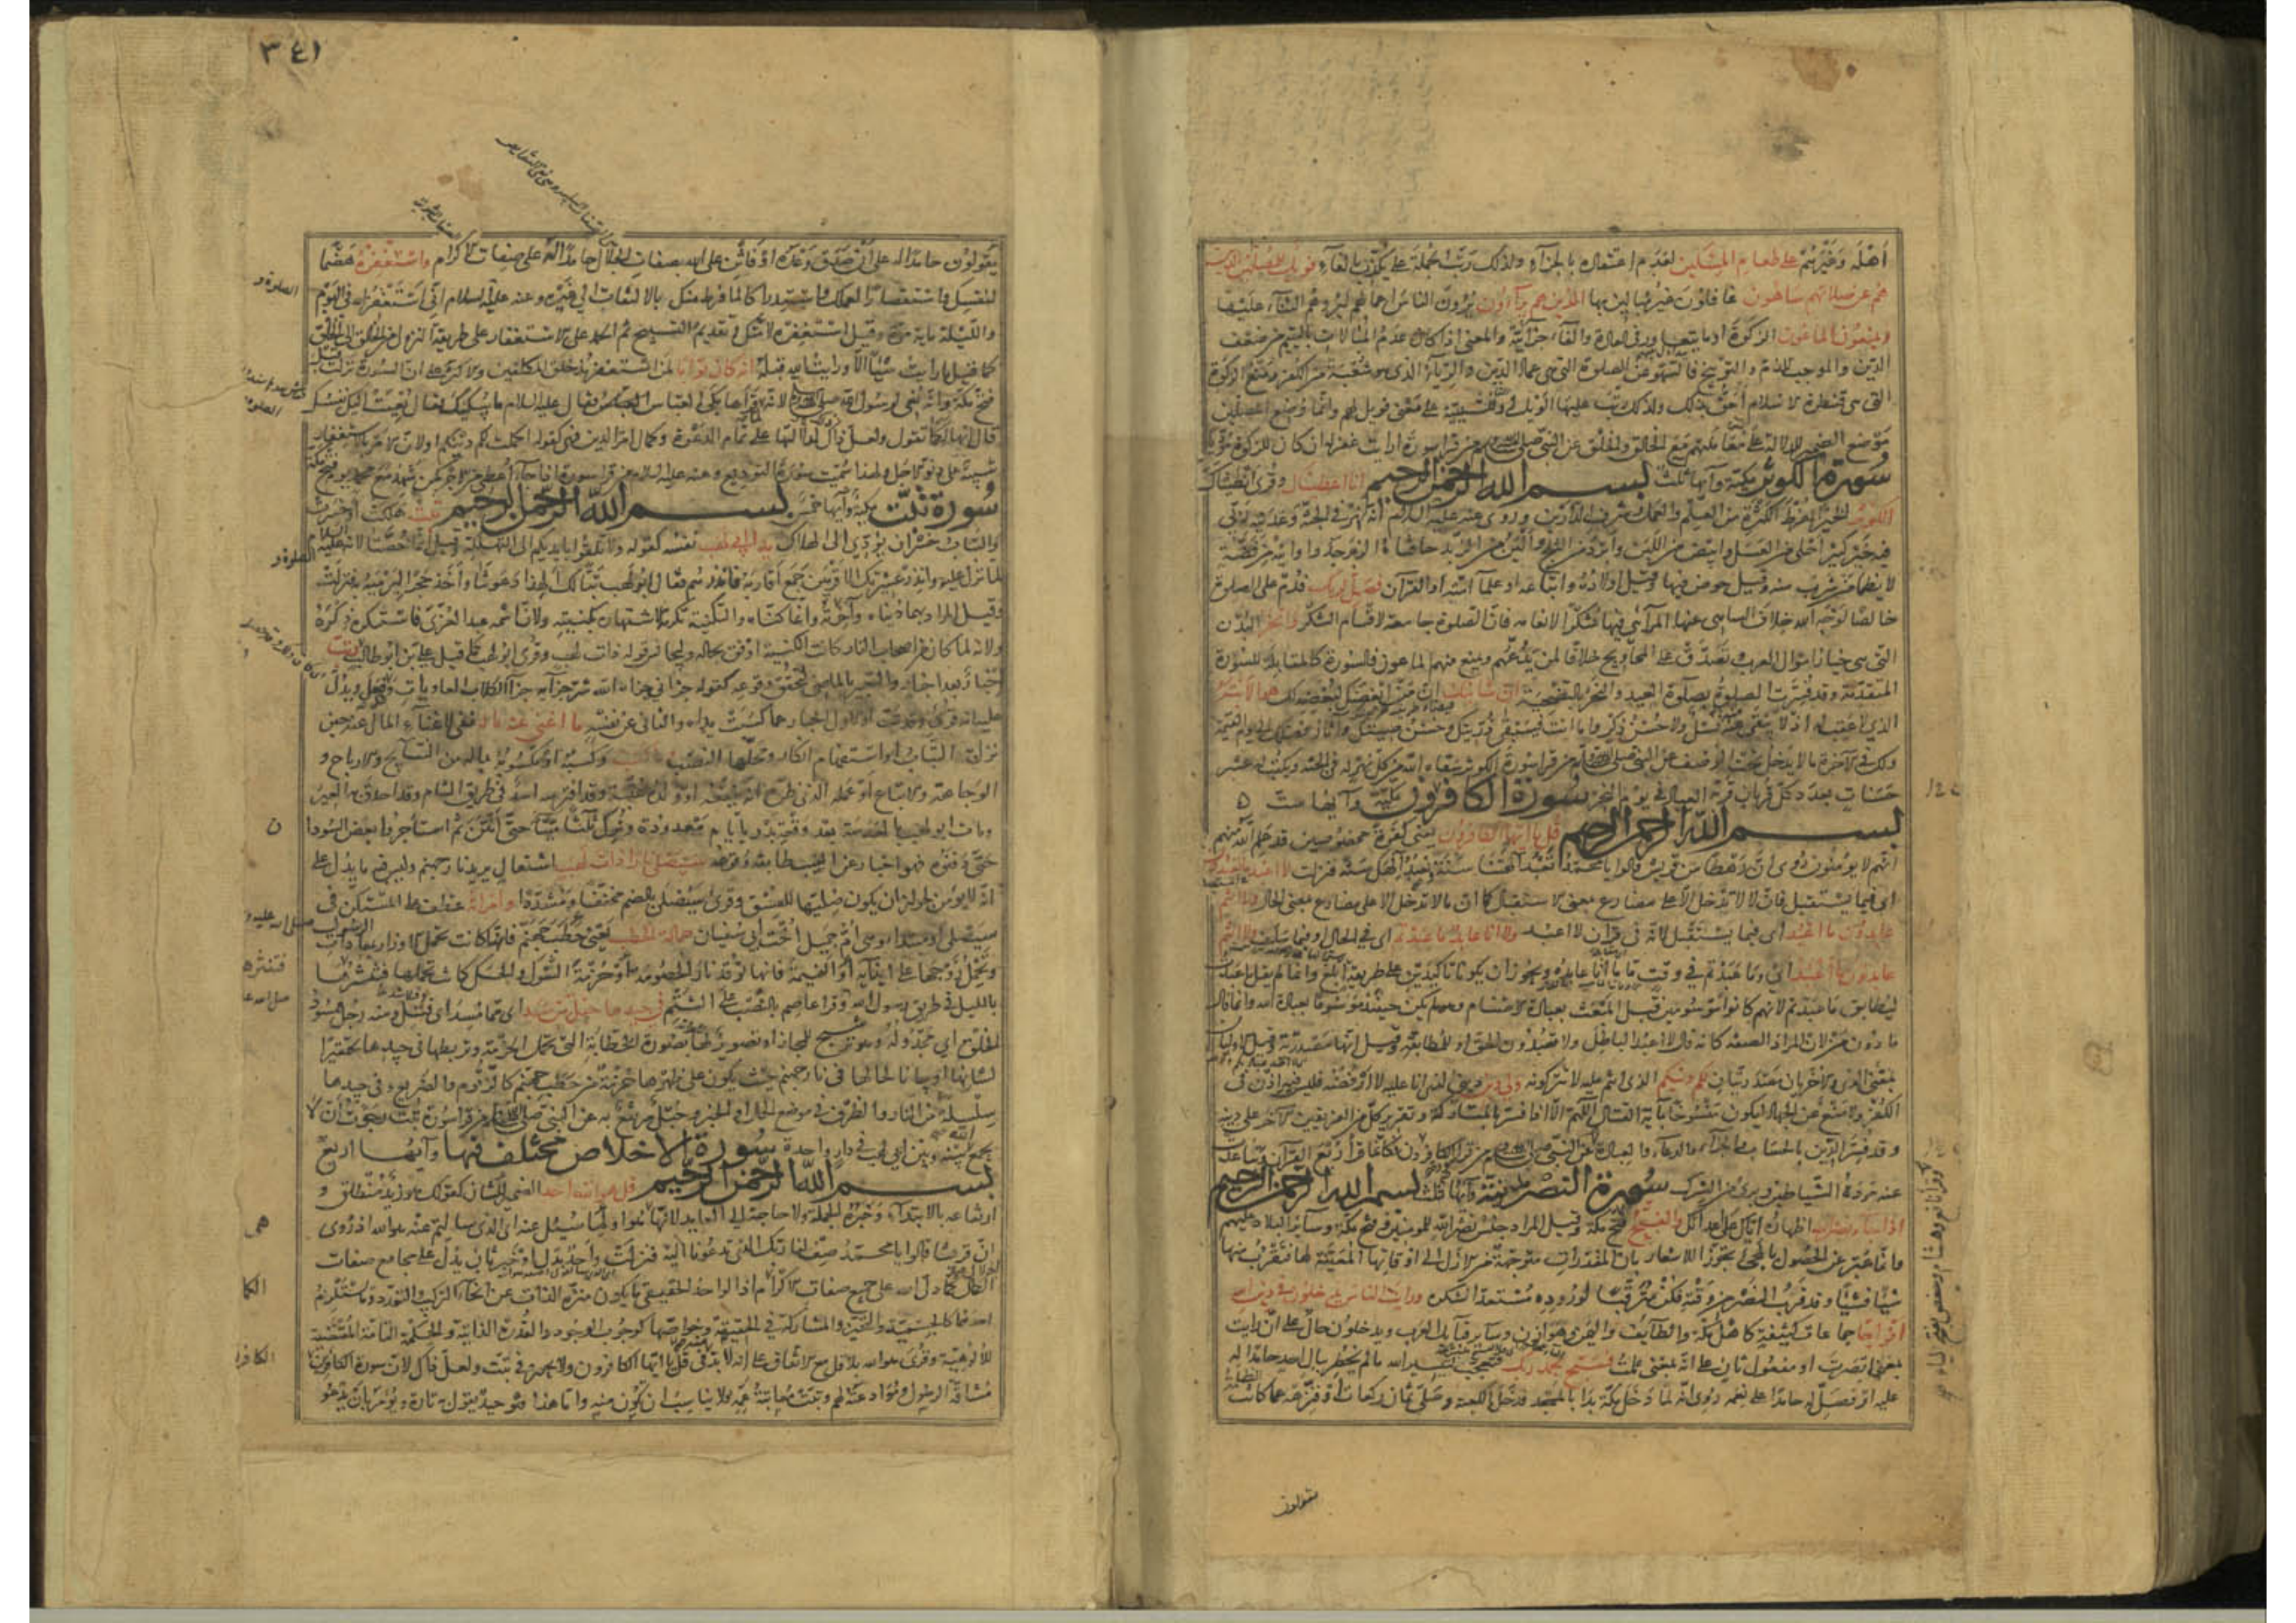 أهله وغيرهم على طعام المسكين لعدم اعتقاده بالجزاء ولذلك رتب الجملة على يكذب بالفاء فويل للمصلين الذين
هم عن صلاتهم ساهون غافلون غير مبالين بها الذين هم يراءون يرون الناس اعمالهم ليروهم الثناء عليها
ويمنعون الماعون الزكوة او ما يتعاور في العادة والفاء جزائية والمعنى اذا كان عدم المبالات باليتيم من ضعف
الدين والموجب للذم والتوبيخ فالسهو عن الصلوة التي هي عماد الدين والرياء الذي هو شعبة من الكفر ومنع الزكوة
التي هي قنطرة الاسلام احق بذلك ولذلك رتب عليها الويل او للسببية على معنى فويل لهم وانما وضع المصلين
موضع الضمير للدلالة على معاملتهم مع الخالق والخلق عن النبي صلى الله عليه وسلم من قرا سورة ارايت غفر له ان كان للزكوة مؤديا
سورة الكوثر مكية وآيها ثلث بسم الله الرحمن الرحيم انا اعطيناك وقرئ انطيناك
الكوثر الخير المفرط الكثرة من العلم والعمل وشرف الدارين وروي عنه عليه السلام انه نهر في الجنة وعدنيه ربي
فيه خير كثير احلى من العسل وابيض من اللبن وابرد من الثلج والين من الزبد حافتاه الزبرجد واوانيه من فضة
لا يظمأ من شرب منه وقيل حوض فيها وقيل اولاده واتباعه او علماء امته او القرآن فصل لربك فدم على الصلوة
خالصا لوجه الله خلاف الساهي عنها المرائي فيها شكرا لانعامه فان الصلوة جامعة لاقسام الشكر وانحر البدن
التي هي خيار اموال العرب وتصدق على المحاويج خلافا لمن يدعهم ويمنع منهم الماعون فالسورة كالمقابلة للسورة
المتقدمة وقد فسرت الصلوة بصلوة العيد والنحر بالتضحية ان شانئك ان من ابغضك لبغضه لك هو الابتر
الذي لا عقب له اذ لا يبقى منه نسل ولا حسن ذكر واما انت فيبقى ذريتك وحسن صيتك واثار فضلك الى يوم القيمة
ولك في الاخرة ما لا يدخل تحت الوصف عن النبي صلى الله عليه وسلم من قرا سورة الكوثر سقاه الله من كل نهر له في الجنة ويكتب له عشر
حسنات بعدد كل قربان قربه العباد في يوم النحر سورة الكافرون مكية وآيها ست
بسم الله الرحمن الرحيم قل يا ايها الكافرون يعني كفرة مخصوصين قد علم الله منهم
انهم لا يؤمنون روي ان رهطا من قريش قالوا يا محمد تعبد آلهتنا سنة ونعبد إلهك سنة فنزلت لا اعبد ما تعبدون
اي فيما يستقبل فان لا لا تدخل الا على مضارع بمعنى الاستقبال كما ان ما لا تدخل الا على مضارع بمعنى الحال ولا انتم
عابدون ما اعبد اي فيما يستقبل لانه في قران لا اعبد ولا انا عابد ما عبدتم اي في الحال او فيما سلف ولا انتم
عابدون ما اعبد اي وما عبدتم في وقت ما انا عابده ويجوز ان يكونا تاكيدين على طريقة ابلغ وانما لم يقل ما عبدت
ليطابق ما عبدتم لانهم كانوا موسومين قبل المبعث بعبادة الاصنام وهو لم يكن حينئذ موسوما بعبادة الله وانما قال
ما دون من لان المراد الصفة كانه قال لا اعبد الباطل ولا تعبدون الحق او للمطابقة وقيل انها مصدرية وقيل الاوليان
بمعنى الذي والاخريان مصدريتان لكم دينكم الذي انتم عليه لا تتركونه ولي دين ديني الذي انا عليه لا ارفضه فليس فيه اذن في
الكفر ولا منع عن الجهاد ليكون منسوخا بآية القتال اللهم الا اذا فسر بالمتاركة وتقرير كل من الفريقين الاخر على دينه
وقد فسر الدين بالحساب والجزاء والدعاء والعبادة عن النبي صلى الله عليه وسلم من قرا سورة الكافرون فكانما قرأ ربع القرآن وتباعدت
عنه مردة الشياطين وبرئ من الشرك سورة النصر مدنية وآيها ثلث بسم الله الرحمن الرحيم
اذا جاء نصر الله اظهاره اياك على اعدائك والفتح فتح مكة وقيل المراد جنس نصر الله للمؤمنين وفتح مكة وسائر البلاد عليهم
وانما عبر عن الحصول بالمجيء تجوزا للاشعار بان المقدرات متوجهة من الازل الى اوقاتها المعينة لها فتقرب منها
شيئا فشيئا وقد قرب النصر من وقته فكن مترقبا لوروده مستعدا لشكره ورايت الناس يدخلون في دين الله
افواجا جماعات كثيفة كاهل مكة والطائف واليمن وهوازن وسائر قبائل العرب ويدخلون حال على ان رايت
بمعنى ابصرت او مفعول ثان على انه بمعنى علمت فسبح بحمد ربك فتعجب لتيسير الله ما لم يخطر ببال احد حامدا له
عليه او فصل له حامدا على نعمه روي انه لما دخل مكة بدا بالمسجد فدخل الكعبة وصلى ثمان ركعات او فنزهه عما كانت
يقولون
٣٤١
يقولون حامدا له على ان صدق وعده او فاثن على الله بصفات الجلال حامدا له على صفات الاكرام واستغفره هضما
لنفسك واستقصارا لعملك واستدراكا لما فرط منك بالالتفات الى غيره وعنه عليه السلام اني استغفر الله في اليوم
والليلة ماية مرة وقيل استغفره لامتك وتقديم التسبيح ثم الحمد على الاستغفار على طريقة النزول من الخالق الى الخلق
كما قيل ما رايت شيئا الا ورايت الله قبله انه كان توابا لمن استغفر مذ خلق المكلفين والاكثر على ان السورة نزلت قبل
فتح مكة وانه نعي لرسول الله صلى الله عليه وسلم لانه لما قراها بكى العباس فقال عليه السلام ما يبكيك فقال نعيت اليك نفسك
قال انها لكما تقول ولعل ذلك لدلالتها على تمام الدعوة وكمال امر الدين فهي كقوله اكملت لكم دينكم او لان الامر بالاستغفار
تنبيه على دنو الاجل ولهذا سميت سورة التوديع وعنه عليه السلام من قرا سورة اذا جاء أعطي من الاجر كمن شهد مع محمد يوم فتح مكة
سورة تبت مكية وآيها خمس بسم الله الرحمن الرحيم تبت هلكت او خسرت
والتباب خسران يؤدي الى الهلاك يدا ابي لهب نفسه كقوله ولا تلقوا بايديكم الى التهلكة وقيل انما خصتا لانه عليه السلام
لما نزل عليه وانذر عشيرتك الاقربين جمع اقاربه فانذرهم فقال ابو لهب تبا لك ألهذا دعوتنا وأخذ حجرا ليرميه به فنزلت
وقيل المراد بهما دنياه وآخرته وانما كناه والتكنية تكرمة لاشتهاره بكنيته ولان اسمه عبد العزى فاستكره ذكره
ولانه لما كان من اصحاب النار كانت الكنية اوفق بحاله وليجانس قوله ذات لهب وقرئ ابو لهب كما قيل علي بن ابو طالب وتب
اخبار بعد اخبار والتعبير بالماضي لتحقق وقوعه كقوله جزاني جزاه الله شر جزائه جزاء الكلاب العاويات وقد فعل ويدل
عليه انه قرئ وقد تب او الاول اخبار عما كسبت يداه والثاني عن نفسه ما اغنى عنه ماله نفي لاغناء المال عنه حين
نزل به التباب او استفهام انكار له ومحلها النصب وما كسب وكسبه او مكسوبه بماله من النتايج والارباح و
الوجاهة والاتباع او عمله الذي ظن انه ينفعه او ولده عتبة وقد افترسه اسد في طريق الشام وقد احدق به العير
ومات ابو لهب بالعدسة بعد وقعة بدر بايام معدودة وترك ثلثا ميتا حتى انتن ثم استأجروا بعض السودان
حتى دفنوه فهو اخبار عن الغيب طابقه وقوعه سيصلى نارا ذات لهب اشتعال يريد نار جهنم وليس فيه ما يدل على
انه لا يؤمن لجواز ان يكون صليها للفسق وقرئ سيصلى بالضم مخففا ومشددا وامراته عطف على المستكن في
سيصلى او مبتدا وهي ام جميل اخت ابي سفيان حمالة الحطب يعني حطب جهنم فانها كانت تحمل الاوزار بمعاداة
وتحمل زوجها على ايذائه او النميمة فانها توقد نار الخصومة او حزمة الشوك والحسك كانت تحملها فتنثرها
بالليل في طريق رسول الله وقرا عاصم بالنصب على الشتم في جيدها حبل من مسد اي مما مسد اي فتل ومنه رجل ممسود
الخلق اي مجدوله وهو ترشيح للمجاز او تصوير لها بصورة الحطابة التي تحمل الحزمة وتربطها في جيدها تحقيرا
لشانها او بيانا لحالها في نار جهنم حيث يكون على ظهرها حزمة من حطب جهنم كالزقوم والضريع وفي جيدها
سلسلة من النار والظرف في موضع الحال او الخبر وحبل مرتفع به عن النبي صلى الله عليه وسلم من قرا سورة تبت رجوت أن لا
يجمع الله بينه وبين ابي لهب في دار واحدة سورة الاخلاص مختلف فيها وآيها اربع
بسم الله الرحمن الرحيم قل هو الله احد الضمير للشان كقولك هو زيد منطلق و
ارتفاعه بالابتداء وخبره الجملة ولا حاجة الى العايد لانها هي هو او لما سئل عنه اي الذي سالتم عنه هو الله اذ روي
ان قريشا قالوا يا محمد صف لنا ربك الذي تدعونا اليه فنزلت واحد بدل او خبر ثان يدل على مجامع صفات
الجلال كما دل الله على جميع صفات الاكرام اذ الواحد الحقيقي ما يكون منزه الذات عن انحاء التركيب والتعدد وما يستلزم
احدهما كالجسمية والتحيز والمشاركة في الحقيقة وخواصها كوجوب الوجود والقدرة الذاتية والحكمة التامة المقتضية
للالوهية وقرئ هو الله بلا قل مع الاتفاق على انه لا بد في قل يا ايها الكافرون ولا يجوز في تبت ولعل ذاك لان سورة الكافرين
مشاقة الرسول وموادعته لهم وتبت معاتبة عمه ولا يناسب ان تكون منه واما هذا فتوحيد يقول به تارة ويؤمر بان يدعو